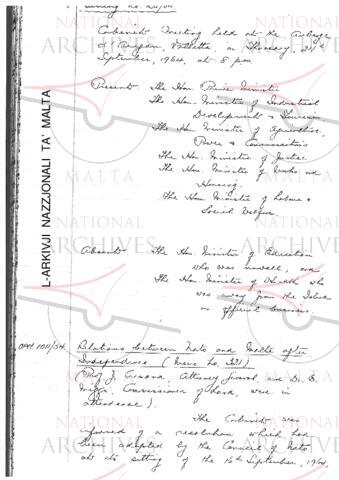 Cabinet Meeting held at the Auberge
d'Aragon, Valletta, on Thursday,
September, 1964, at 5 pm
Present The Hon. Prime Minister
The Hon. Minister of Industrial
Development & Tourism
The Hon. Minister of Agriculture,
Power & Communications
The Hon. Minister of Justice
The Hon. Minister of Works and
Housing
The Hon. Minister of Labour &
Social Welfare
L-ARKIVJI NAZZJONALI TA' MALTA
Absent The Hon Minister of Education
who was unwell, and
The Hon. Minister of Health who
was away from the Island
on official business.
Relations between Nato and Malta after
Independence (Memo No.
(Prof J. Cremona, Attorney General, and Dr. E.
Mizzi, Commissioner of Land, were in
attendance).
The Cabinet was
informed of a resolution which had
been adopted by the Council of Nato
at its sitting of the 16th September, 1964,
NATIONAL
ARCHIVES
NATIONAL
ARCHIVES
NATIONAL
ARCHIVES
NATIONAL
ARCHIVES